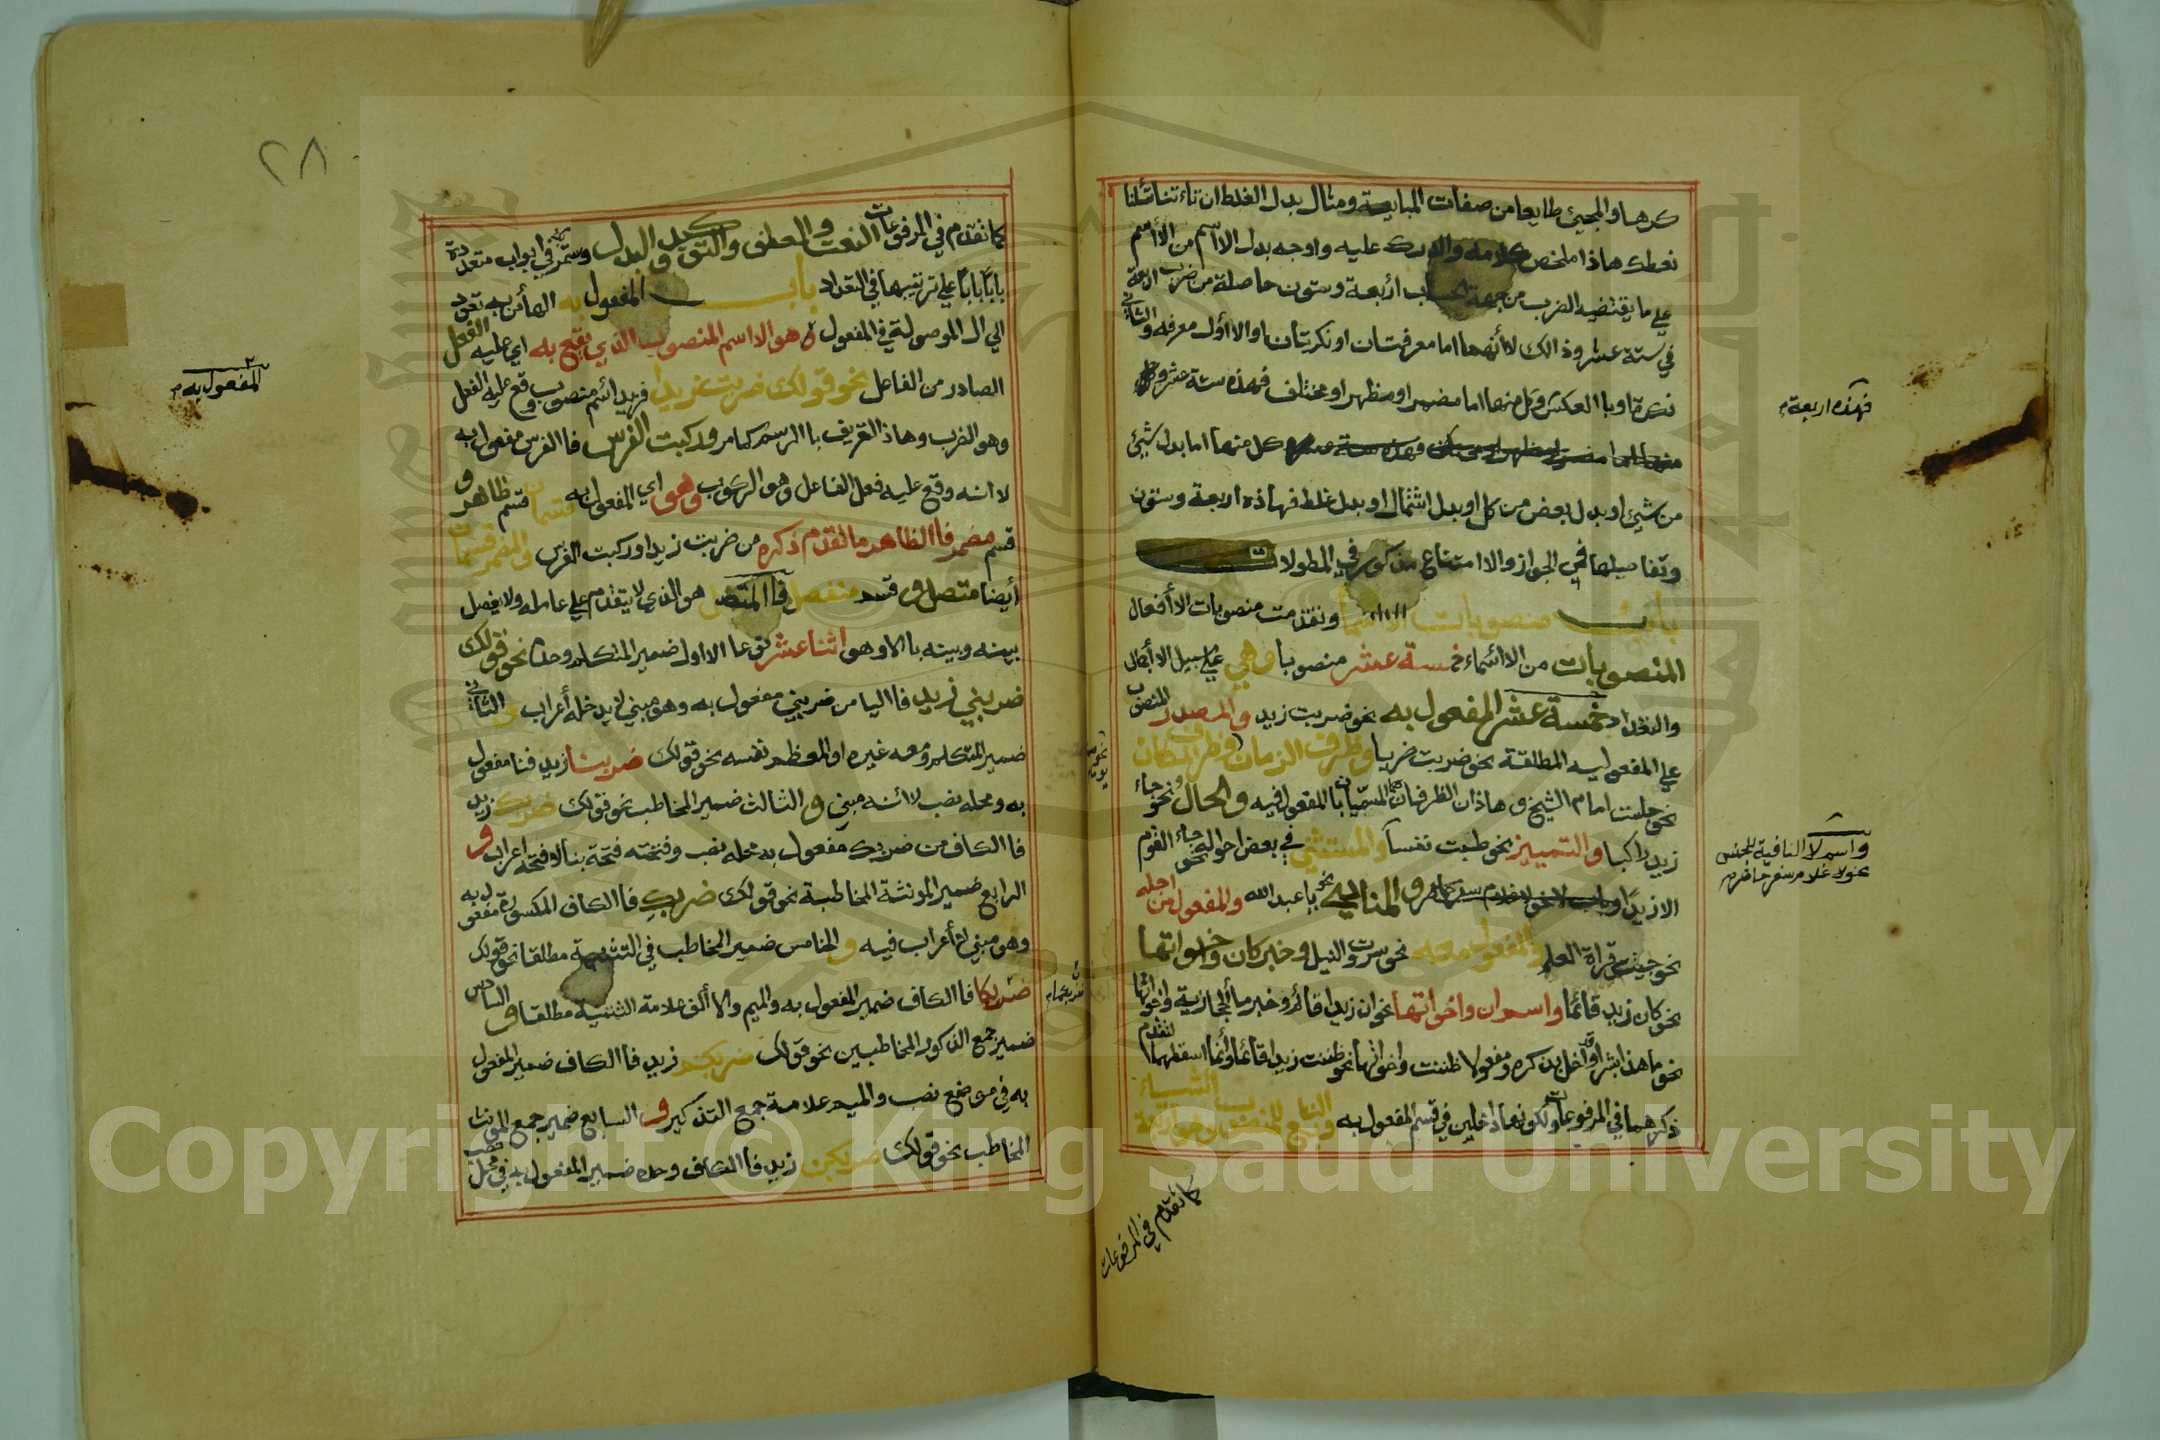 كرها والمجيئ طايعا من صفات المبايعة ومثال بدل الغلط ان تاءتنا تسئلنا
نعطك هاذا ملخص كلامه والدرك عليه واوجه بدل الاسم من الاسم
علي ما يقتضيه الضرب من جهة الحساب أربعة وستون حاصلة من ضرب اربعة
في ستة عشر وذالك لاأنهما اما معرفتان او نكريتان او الاأول معرفه والثاني
نكرة او باالعكس وكل منهما اما مضمر او مظهر او مختلف فهذه ستة عشر وكل
كل منهما اما بدل شيئ
من شيئ او بدل بعض من كل او بدل اشتمال او بدل غلط فهاذه اربعة وستون
وتفاصيلها في الجواز والاامتناع مذكور في المطولات
باب منصوبات الاسما وتقدمت منصوبات الاأفعال
المنصوبات من الاأسماء خمسة عشر منصوبا وهي علي سبيل الاجمال
والتعداد خمسة عشر المفعول به نحو ضربت زيد والمصدر المنصوب
علي المفعوليه المطلقة نحو ضربت ضربا وظرف الزمان وظرف المكان
نحو جلست امام الشيخ وهاذان الظرفان هما المسميان باالمفعول فيه والحال نحو جاء
زيد راكبا والتمييز نحو طبت نفسا والمستثني في بعض احواله نحو جاء القوم
الا زيدا والمنادي نحو يا عبد الله والمفعول من اجله
نحو جيت قراة العلم والمفعول معه نحو سرت والنيل وخبر كان واخواتها
نحو كان زيد قائما واسم ان واخواتها نحو ان زيدا قائم وخبر ما الحجازية واخواتها
نحو ما هذا بشرا وقد اخل بذكره ومفعولا ظننت واخواتها نحو ظننت زيدا قائما وأنما اسقطهما لتقدم
ذكرهما في المرفوعات ولكونهما داخلين في قسم المفعول به والتابع للمنصوب وهو اربعة اشياء
كما تقدم في المرفوعات
فهذه اربعة م
واسم لا النافية للجنس
نحو لا غلام سفر حاضر م
٢٨
كما تقدم في المرفوعات النعت والعطف والتوكيد والبدل وستمر في ابواب متعددة
بابا بابا علي ترتيبها في التعداد باب المفعول به الهاء من به تعود
الي ال الموصولة في المفعول وهو الااسم المنصوب الذي يقع به اي عليه الفعل
الصادر من الفاعل نحو قولك ضربت زيدا فزيد اسم منصوب وقع عليه الفعل
وهو الضرب وهاذ التعريف باالرسم كما مر وركبت الفرس فاالفرس مفعول به
لاانه وقع عليه فعل الفاعل وهو الركوب وهو اي المفعول به قسمان قسم ظاهر و
قسم مضمر فاالظاهر ما تقدم ذكره من ضربت زيدا وركبت الفرس والمضمر قسمان
أيضا متصل وقسم منفصل فاالمتصل هو الذي لا يتقدم علي عامله ولا يفصل
بينه وبينه باالا وهو اثنا عشر نوعا الااول ضمير المتكلم وحده نحو قولك
ضربني زيد فااليا من ضربني مفعول به وهو مبني لا يدخله أعراب والثاني
ضمير المتكلم ومعه غيره او المعظم نفسه نحو قولك ضربنا زيد فنا مفعول
به ومحله نصب لاأنه مبني والثالث ضمير المخاطب نحو قولك ضربك زيد
فاالكاف من ضربك مفعول به محله نصب وفتحته فتحة بنا لا فتحة اعراب و
الرابع ضمير المونثة المخاطبة نحو قولك ضربك فاالكاف المكسورة مفعول به
وهو مبني لا أعراب فيه والخامس ضمير المخاطب في التثنية مطلقا نحو قولك
ضربكما فاالكاف ضمير المفعول به والميم والاألف علامة التثنية مطلقا والسادس
ضمير جمع الذكور المخاطبين نحو قولك ضربكم زيد فاالكاف ضمير المفعول
به في موضع نصب والميم علامة جمع التذكير والسابع ضمير جمع المونث
المخاطب نحو قولك ضربكن زيد فاالكاف وحده ضمير المفعول به في محل نصب
المفعول به م
Copyright © King Saud University